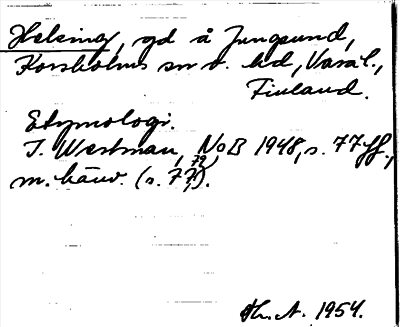 Helsing, gd å Jungsund,
Korsholms sn o. hd, Vasal.,
Finland.
Etymologi.
I. Westman, NoB 1948, s. 77 ff.,
m. hänv. (s. 77, 79).
Th. A. 1954.